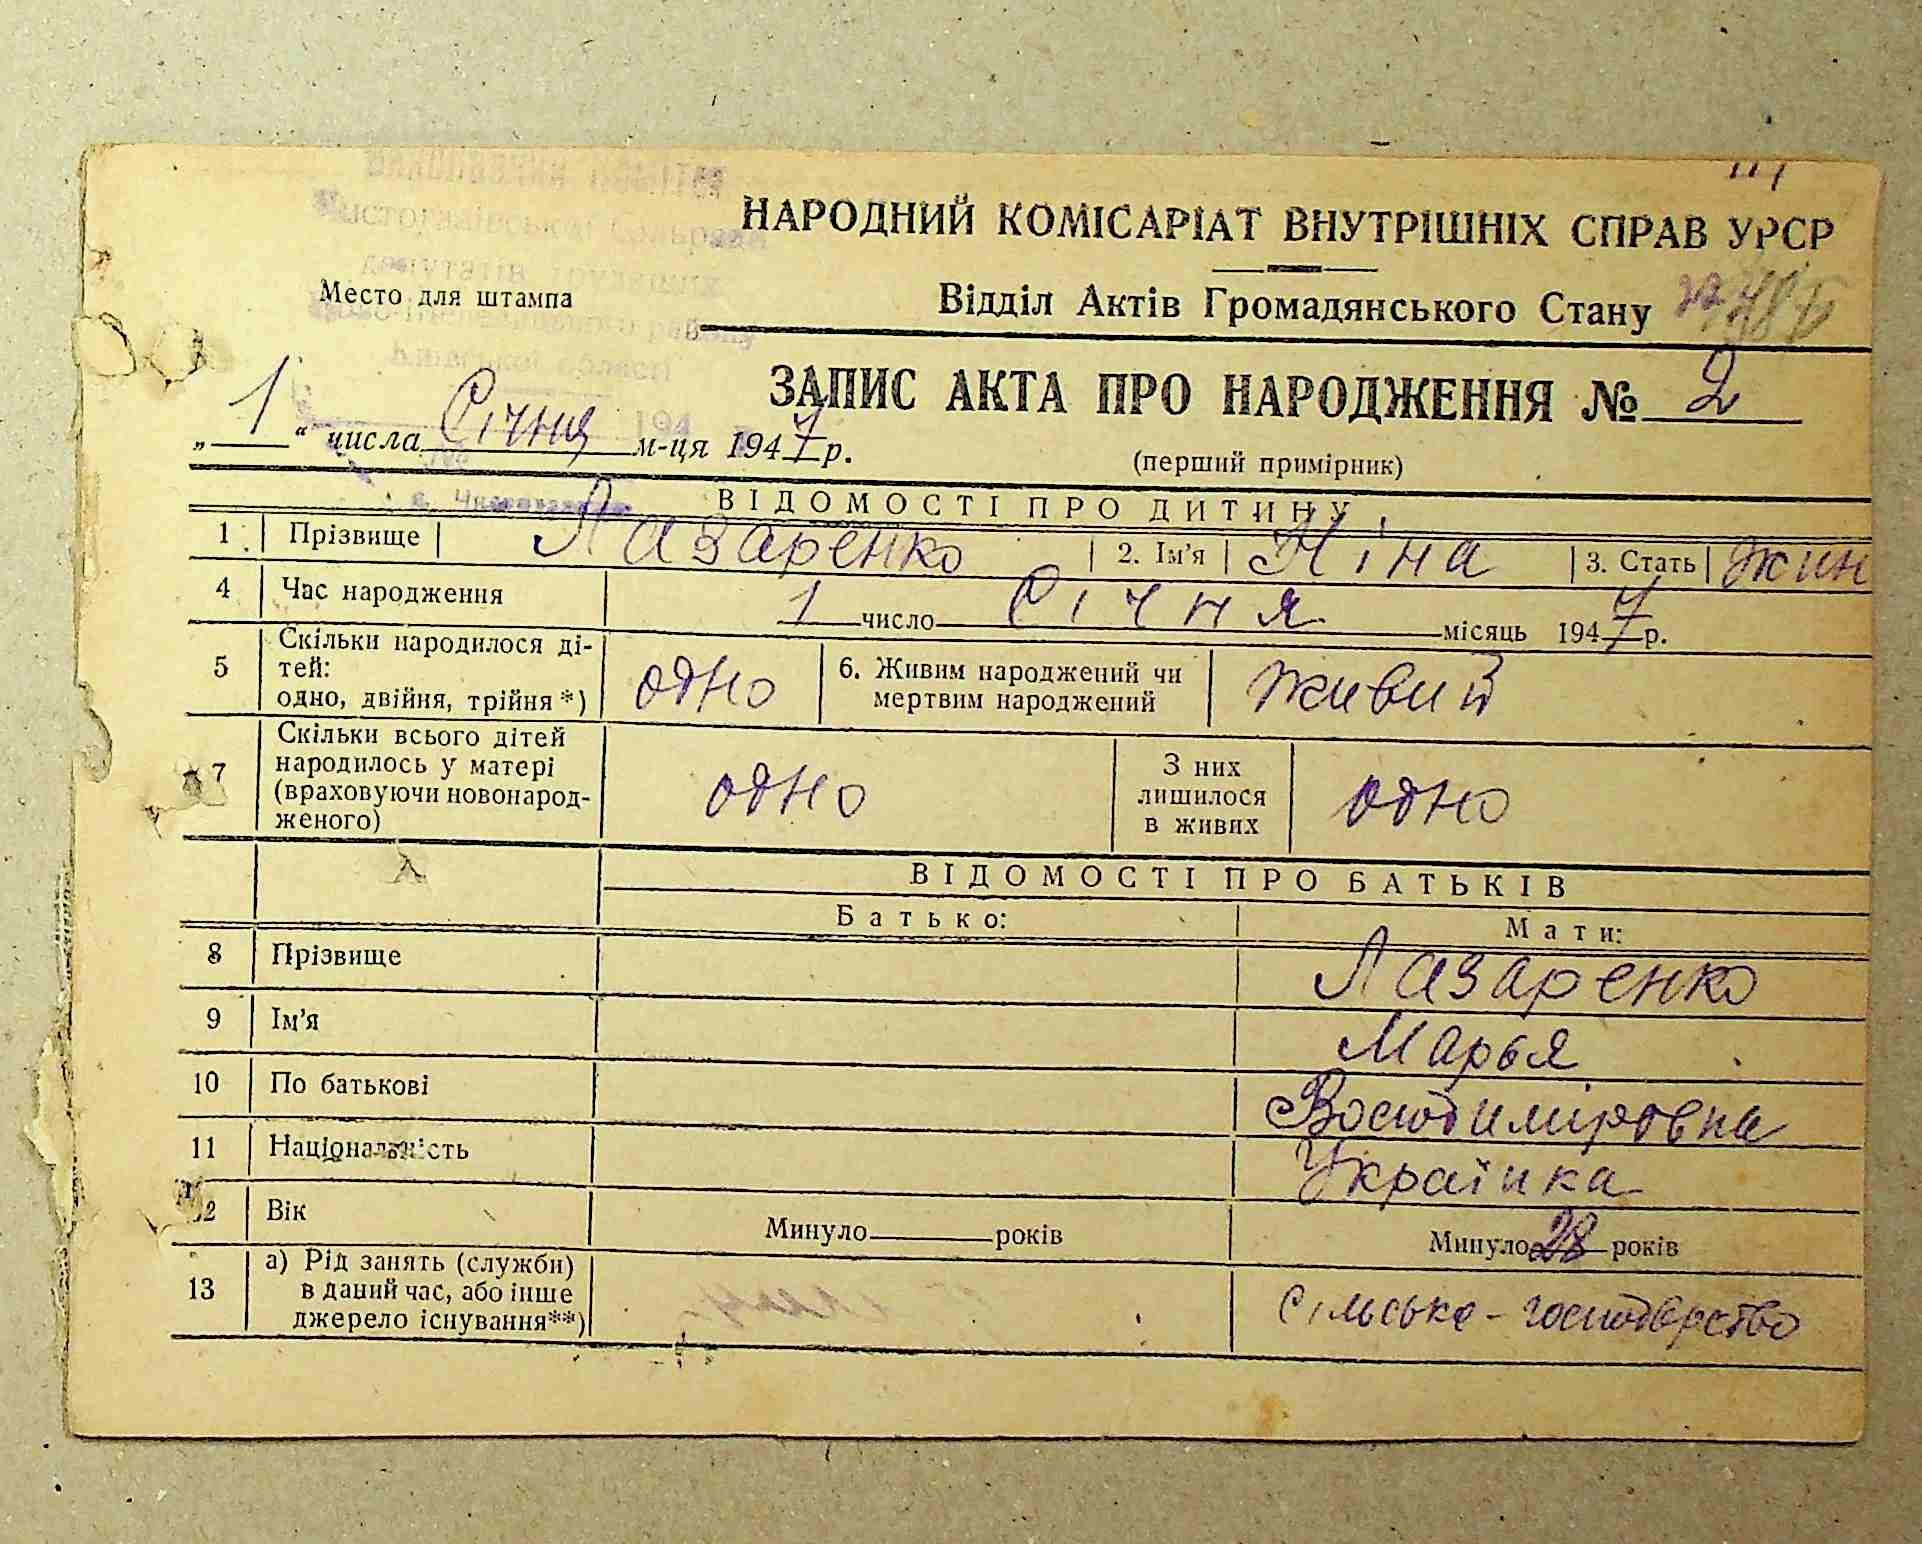 НАРОДНИЙ КОМІСАРІАТ ВНУТРІШНІХ СПРАВ УРСР
Место для штампа
Відділ Актів Громадянського Стану
ЗАПИС АКТА ПРО НАРОДЖЕННЯ № 2
„ 1 “ числа Січня м-ця 1947 р.
(перший примірник)
ВІДОМОСТІ ПРО ДИТИНУ
1 Прізвище Лазаренко 2. Ім'я Ніна 3. Стать жин
4 Час народження 1 число Січня місяць 1947 р.
5 Скільки народилося ді-
тей:
одно, двійня, трійня *) одно 6. Живим народжений чи
мертвим народжений живий
7 Скільки всього дітей
народилось у матері
(враховуючи новонарод-
женого) одно З них
лишилося
в живих одно
ВІДОМОСТІ ПРО БАТЬКІВ
Батько: Мати:
8 Прізвище Лазаренко
9 Ім'я Марья
10 По батькові Володиміровна
11 Національність Українка
12 Вік Минуло років Минуло 28 років
13 а) Рід занять (служби)
в даний час, або інше
джерело існування**) сільське-господарство